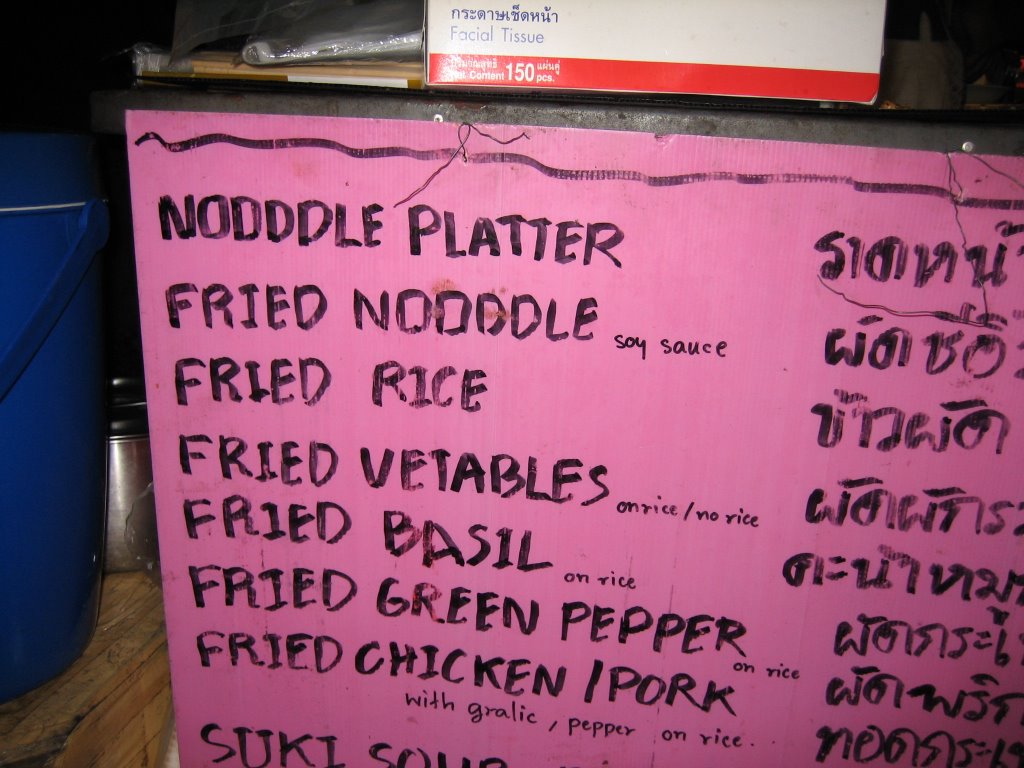 กระดาษเช็ดหน้า
Facial Tissue
ปริมาณสุทธิ 150 แผ่นคู่
Net Content 150 pcs.
NODDDLE PLATTER ราดหน้
FRIED NODDDLE soy sauce ผัดซีอิ๊
FRIED RICE ข้าวผัด
FRIED VETABLES on rice / no rice ผัดผัก
FRIED BASIL on rice คะน้าหม
FRIED GREEN PEPPER on rice ผัดกระเ
FRIED CHICKEN / PORK ผัดพริก
with gralic , pepper on rice. ทอดกระเ
SUKI SOUP